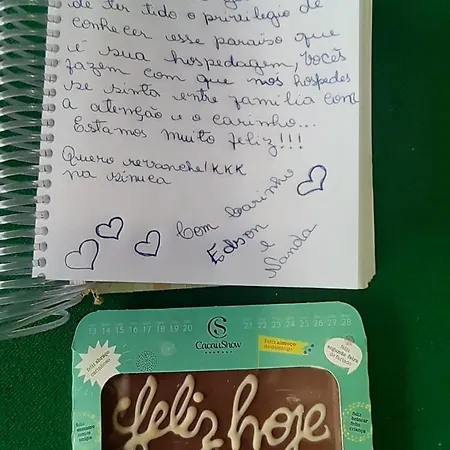 de ter tido o privilegio de
conhecer esse paraiso que
é sua hospedagem, vocês
fazem com que nos hospedes
se sinta entre familia com
a atenção e o carinho...
Estamos muito feliz!!!
Quero revanche!KKK
na sinuca
Com Carinho
Edson e
Nanda
13 14 15 16 17 18 19 20
21 22 23 24 25 26 27 28
CS
CacauShow
feliz almoço
feliz segunda-feira
feliz hoje